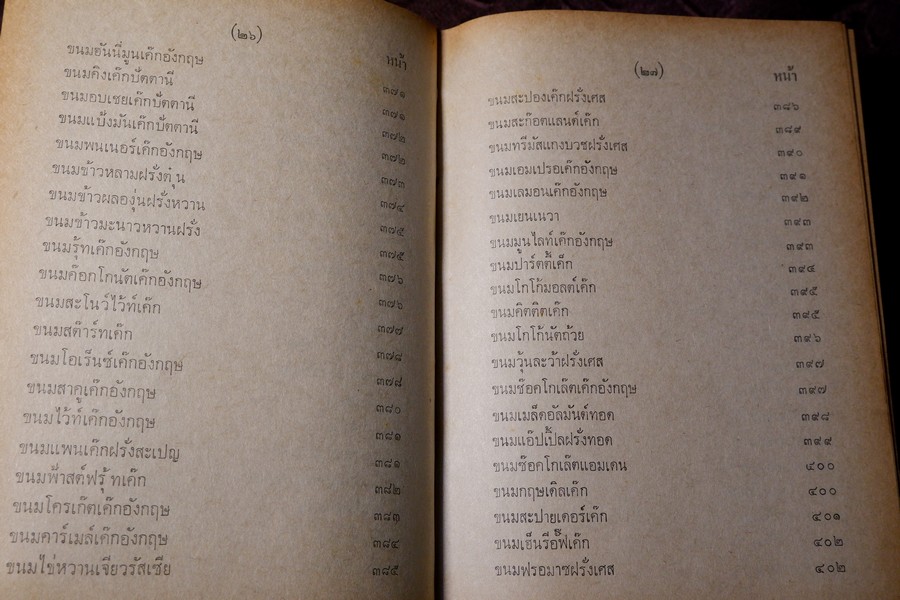 (๒๖)
หน้า
ขนมฮันนี่มูนเค๊กอังกฤษ ๓๗๑
ขนมคิงเค๊กปัตตานี ๓๗๑
ขนมอบเชยเค๊กปัตตานี ๓๗๒
ขนมแป้งมันเค๊กปัตตานี ๓๗๒
ขนมพนเนอร์เค๊กอังกฤษ ๓๗๓
ขนมข้าวหลามฝรั่งตุ๋น ๓๗๔
ขนมข้าวผลองุ่นฝรั่งหวาน ๓๗๕
ขนมข้าวมะนาวหวานฝรั่ง ๓๗๕
ขนมรุ้ทเค๊กอังกฤษ ๓๗๖
ขนมค๊อกโกนัตเค๊กอังกฤษ ๓๗๖
ขนมสะโนว์ไว้ท์เค๊ก ๓๗๗
ขนมสต๊าร์ทเค๊ก ๓๗๘
ขนมโอเร็นซ์เค๊กอังกฤษ ๓๗๘
ขนมสาคูเค๊กอังกฤษ ๓๘๐
ขนมไว้ท์เค๊กอังกฤษ ๓๘๑
ขนมแพนเค๊กฝรั่งสะเปญ ๓๘๑
ขนมฟ้าสต์ฟรุ้ทเค๊ก ๓๘๒
ขนมโครเก๊ตเค๊กอังกฤษ ๓๘๓
ขนมคาร์เมล์เค๊กอังกฤษ ๓๘๔
ขนมไข่หวานเจียวรัสเซีย ๓๘๕
(๒๗)
หน้า
ขนมสะปองเค๊กฝรั่งเศส ๓๘๖
ขนมสะก๊อตแลนด์เค๊ก ๓๘๙
ขนมทรีมัสแกงบวชฝรั่งเศส ๓๙๐
ขนมเอมเปรอเค๊กอังกฤษ ๓๙๑
ขนมเลมอนเค๊กอังกฤษ ๓๙๒
ขนมเยนเนวา ๓๙๓
ขนมมูนไลท์เค๊กอังกฤษ ๓๙๓
ขนมปาร์ตตี้เค็ก ๓๙๔
ขนมโกโก้มอลต์เค๊ก ๓๙๕
ขนมคิตติตเค๊ก ๓๙๕
ขนมโกโก้นัตถ้วย ๓๙๖
ขนมวุ้นละว้าฝรั่งเศส ๓๙๗
ขนมช๊อคโกเล๊ตเค๊กอังกฤษ ๓๙๗
ขนมเมล็ดอัลมันด์ทอด ๓๙๘
ขนมแอ๊ปเปิ้ลฝรั่งทอด ๓๙๙
ขนมช๊อคโกเล๊ตแอมเดน ๔๐๐
ขนมกฤษเดิลเค๊ก ๔๐๐
ขนมสะปายเดอร์เค๊ก ๔๐๑
ขนมเฮ็นรี่อ๊ฟเค๊ก ๔๐๒
ขนมฟรอมาซฝรั่งเศส ๔๐๒